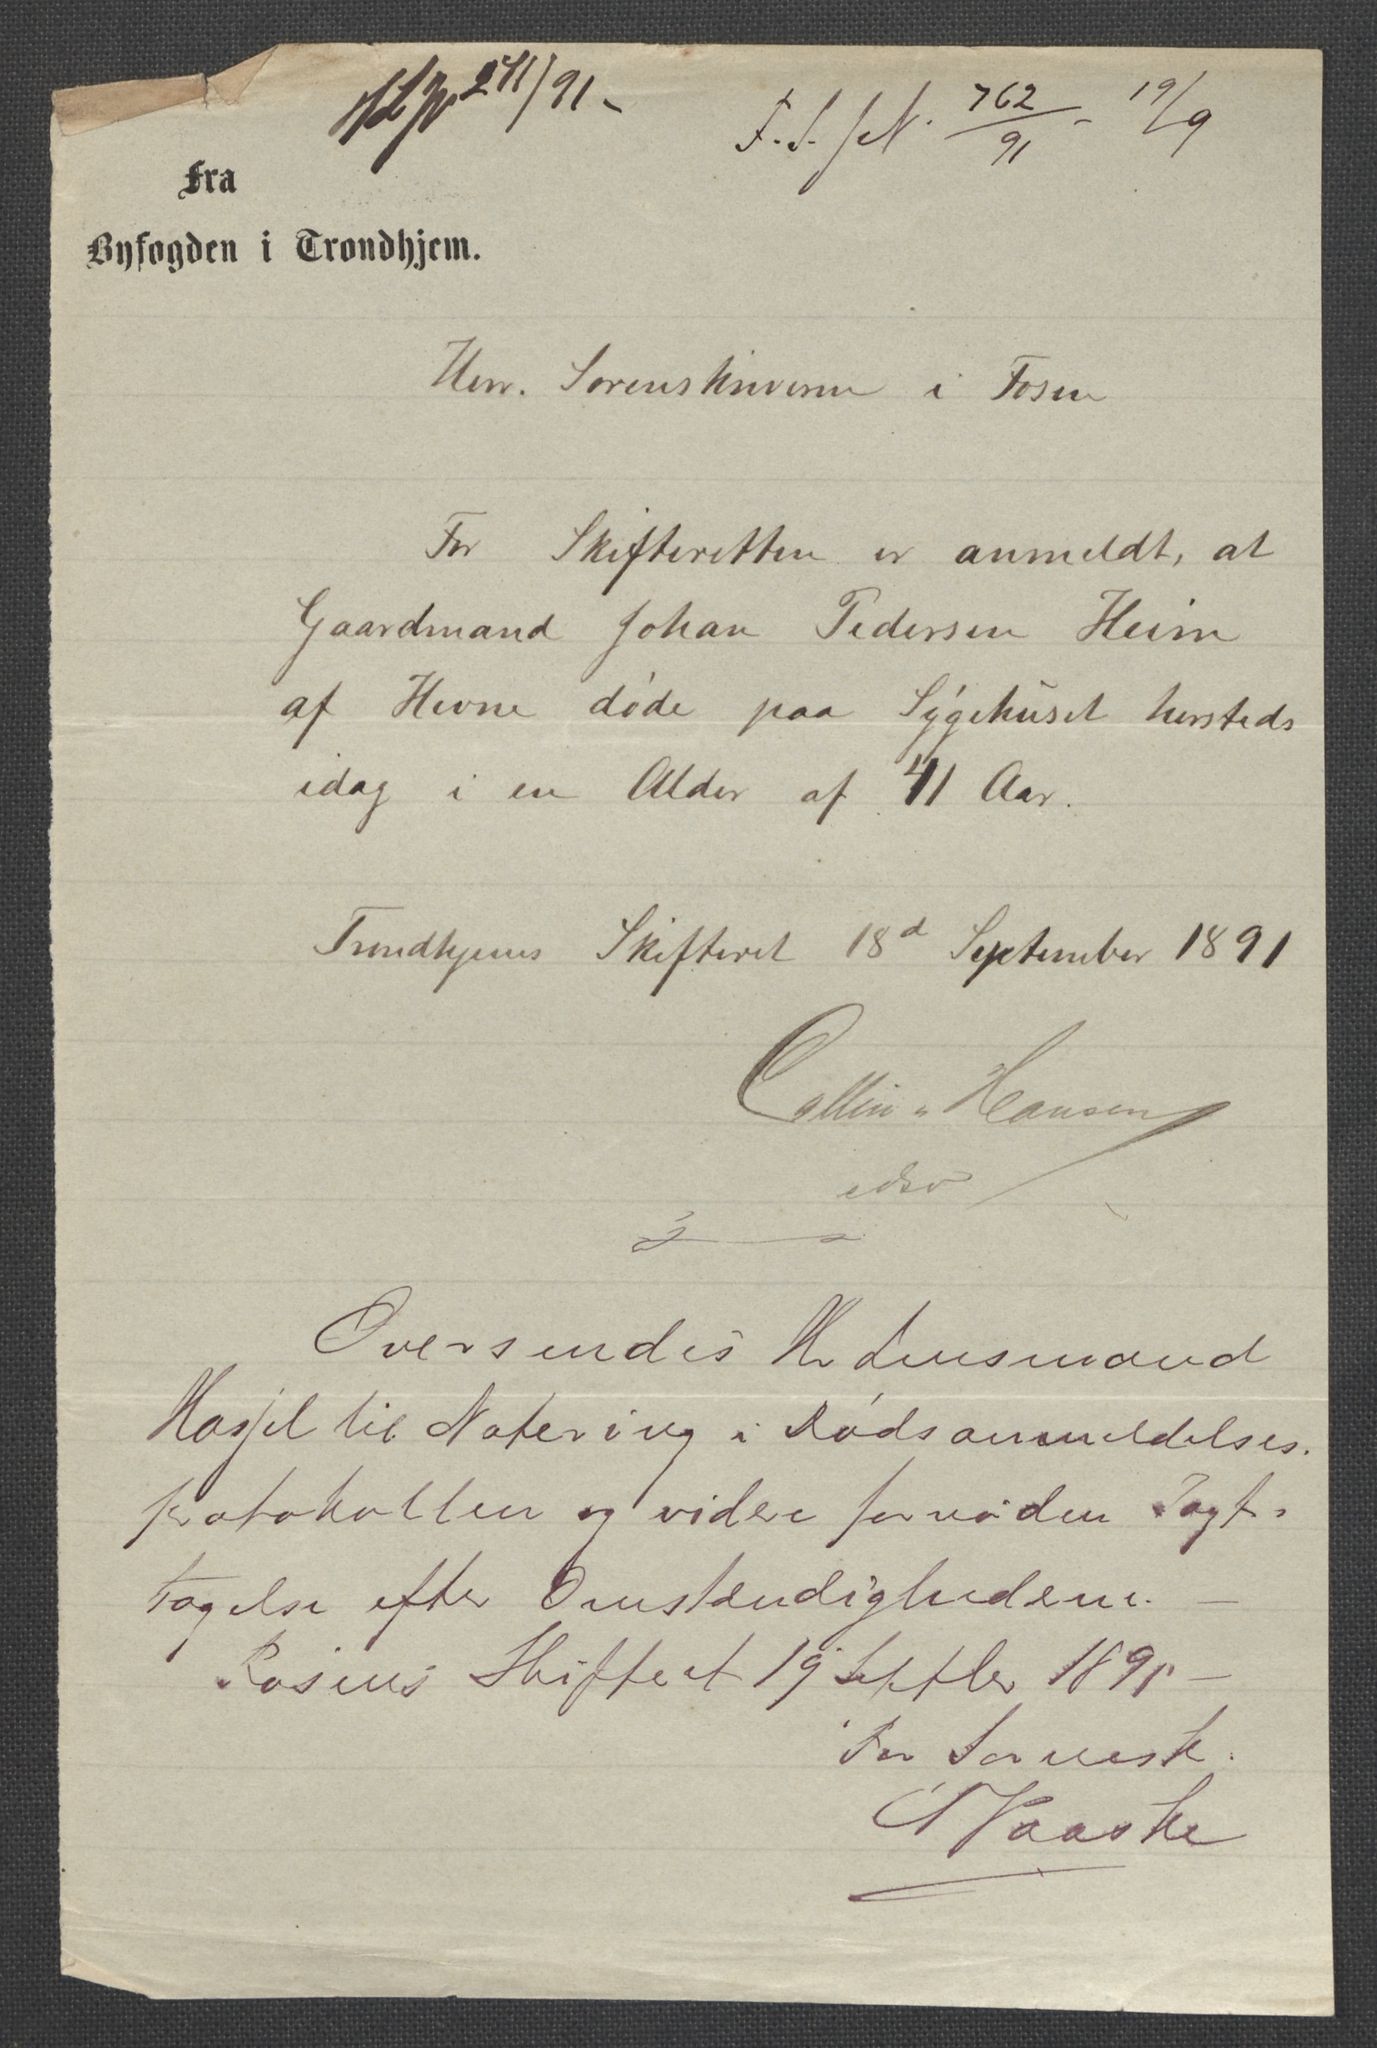 241/91 -
F. S. J N. 762/91 - 19/9
Fra
Byfogden i Trondhjem.
Herr. Sorenskriveren i Fosen
For Skifteretten er anmeldt, at
Gaardmand Johan Pedersen Heim
af Hevne døde paa Sygehuset hersteds
idag i en Alder af 41 Aar.
Trondhjems Skifteret 18d September 1891
Collin Hansen
Oversendes Hr Lensmand
Hasfel til Notering i Dødsanmeldelses-
protokollen og videre fornøden Iagt-
tagelse efter Omstændighederne. -
Fosens Skifteret 19 Septbr 1891 -
For Sorensk.
Vaaske